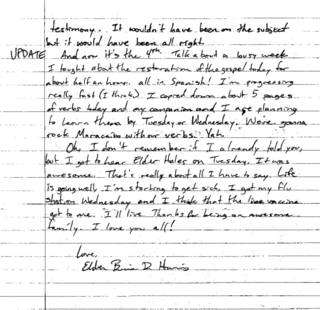 testimony. It wouldn't have been on the subject
but it would have been all right.
UPDATE And now it's the 4th. Talk about a busy week
I taught about the restoration of the gospel today for
about half an hour all in Spanish! I'm progressing
really fast (I think) I copied down about 5 pages
of verbs today and my companion and I are planning
to learn them by Tuesday or Wednesday. We're gonna
rock Maracaibo with our verbs. Yah.
Oh, I don't remember if I already told you,
but I got to hear Elder Holes on Tuesday. It was
awesome. That's really about all I have to say. Life
is going well. I'm starting to get sick. I got my flu
shot on Wednesday and I think that the live vaccine
got to me. I'll live. Thanks for being an awesome
family. I love you all!
Love,
Elder D. Harris